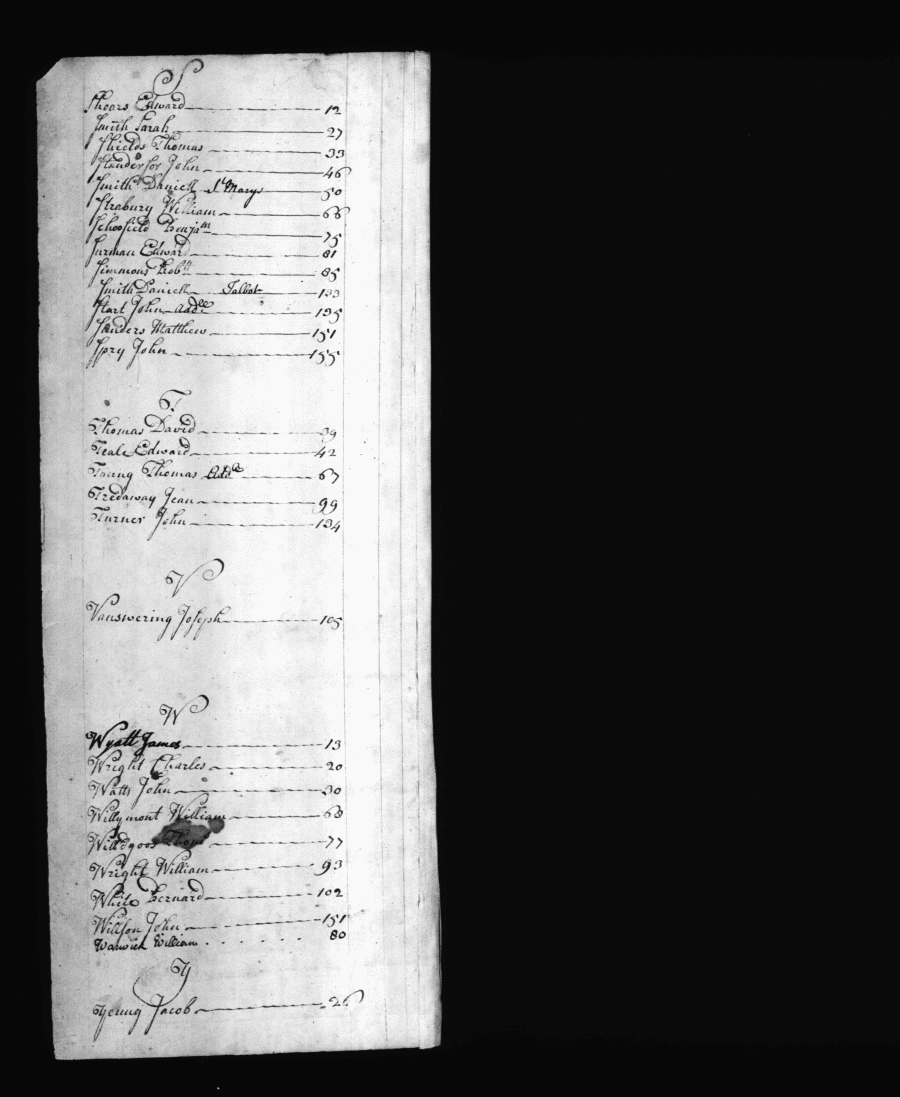 S
Shoars Edward 12
Smith Sarah 27
Shields Thomas 33
Standerfor John 46
Smith Daniell St Marys 50
Strabury William 66
Schoofield Benjan 75
Surman Edward 81
Simmons Robtt 85
Smith Daniell Talbot 133
Start John Addll 135
Sanders Matthew 151
Spry John 155
T
Thomas David 39
Teale Edward 42
Thomas 67
Tredaway Jean 99
Turner John 134
V
Vanswering Joseph 105
W
Wyatt James 13
Wright Charles 20
Watts John 30
Willymont William 63
Willdgoos Thoms 77
Wright William 93
White Bernard 102
Willson John 151
Warwick William 80
Y
Young Jacob 26